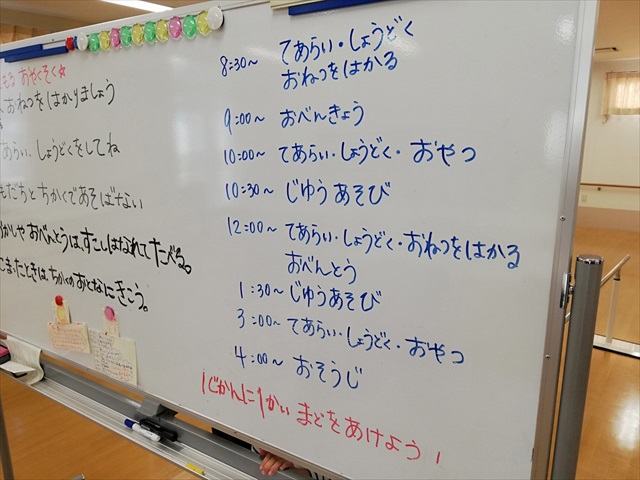 もる おやくそく☆
おねつをはかりましょう
あらい・しょうどくをしてね
もだちと ちかくであそばない
かしや おべんとうは、すこしはなれて たべる。
こまったときは、ちかくの おとなに きこう。
8:30～ てあらい・しょうどく
おねつをはかる
9:00～ おべんきょう
10:00～ てあらい・しょうどく・おやつ
10:30～ じゆうあそび
12:00～ てあらい・しょうどく・おねつをはかる
おべんとう
1:30～ じゆうあそび
3:00～ てあらい・しょうどく・おやつ
4:00～ おそうじ
1じかんに1かい まどをあけよう!